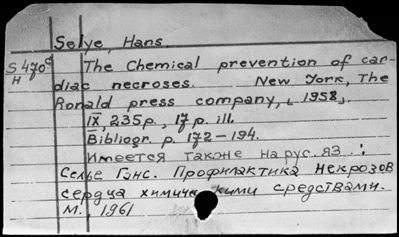 Selye, Hans.
S 470c The Chemical prevention of car-
H diac necroses. New York, The
Ronald press company, [1958].
IX, 235p., 17 p. ill.
Bibliogr. p. 172-194.
Имеется также на рус. яз.:
Селье Ганс. Профилактика некрозов
сердца химическими средствами.
М., 1961